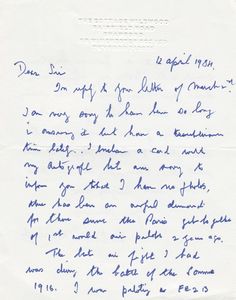 12 April 1984.
Dear Sir
In reply to your letter of March 2nd.
I am very sorry to have been so long
in answering it but have a
time lately. I enclose a card with
my autograph but am sorry to
inform you that I have no photos,
there has been an awful demand
for them since the Paris get-together
of 1st world air pilots 2 years ago.
The last air fight I had
was during the battle of the Somme
1916. I was piloting an FE2B